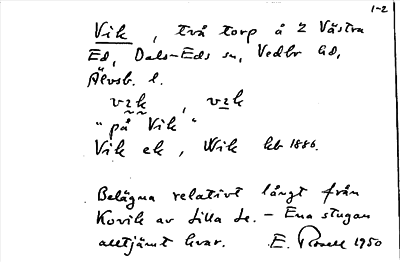 1-2
Vik, två torp å 2 Västra
Ed, Dals-Eds sn, Vedbo hd,
Älvsb. l.
vik, vik
"på Vik"
Vik ek, Wik kb 1886.
Belägna relativt långt från
Kovik av Lilla Le. - Ena stugan
alltjämt kvar. E. Rosell 1950